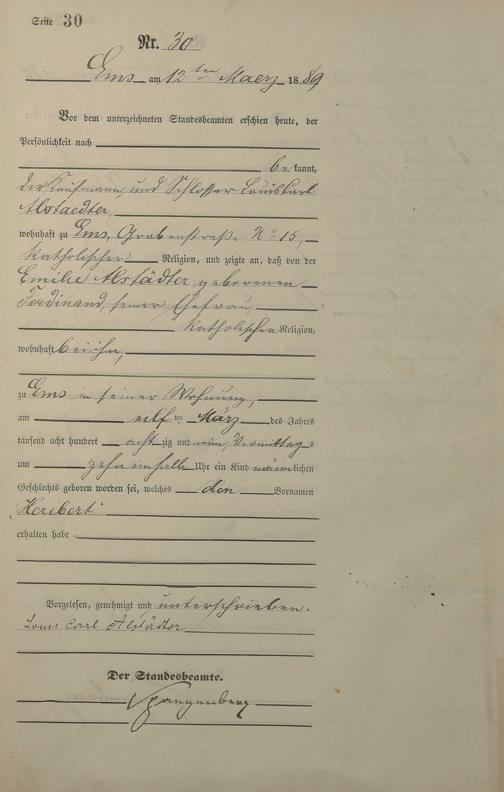 Seite 30
Nr. 30
Ems am 12ten Maerz 1889
Vor dem unterzeichneten Standesbeamten erschien heute, der
Persönlichkeit nach
bekannt,
der Kaufmann und Schlosser Louis Carl
Alstaedter,
wohnhaft zu Ems, Grabenstraße No 15,
katholischer Religion, und zeigte an, daß von der
Emilie Alstädter geborenen
Ferdinand, seiner Ehefrau,
katholischer Religion,
wohnhaft bei ihm,
zu Ems in seiner Wohnung,
am eilften März des Jahres
tausend acht hundert achtzig und neun, Vormittags
um zehn einhalb Uhr ein Kind männlichen
Geschlechts geboren worden sei, welches den Vornamen
Heribert
erhalten habe
Vorgelesen, genehmigt und unterschrieben.
Louis Carl Alstädter
Der Standesbeamte.
Spangenberg